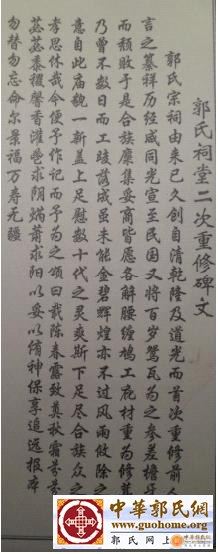 郭氏祠堂二次重修碑文
郭氏宗祠由来已久创自清乾隆及道光而首次重修前人
言之纂祥历经咸同光宣至民国又将百岁鸳瓦为之参差檐牙
而颓败于是合族麇集妥商皆愿各解腰缠鸠工庀材重为修葺
乃曾不数日而工竣落成虽未能金碧辉煌亦不过风雨攸除之
意自此庙貌一新盖上足慰数十代之灵爽斯下足尽合族众之
孝思休哉今便予作记而予为之颂曰载陈春露致奠秋霜芬芬
苾苾黍稷馨香灌鬯求阴焫萧求阳以安以侑神保享追远报本
勿替勿忘命尔景福万寿无疆
中華郭氏网
www.guohome.org
郭氏网上